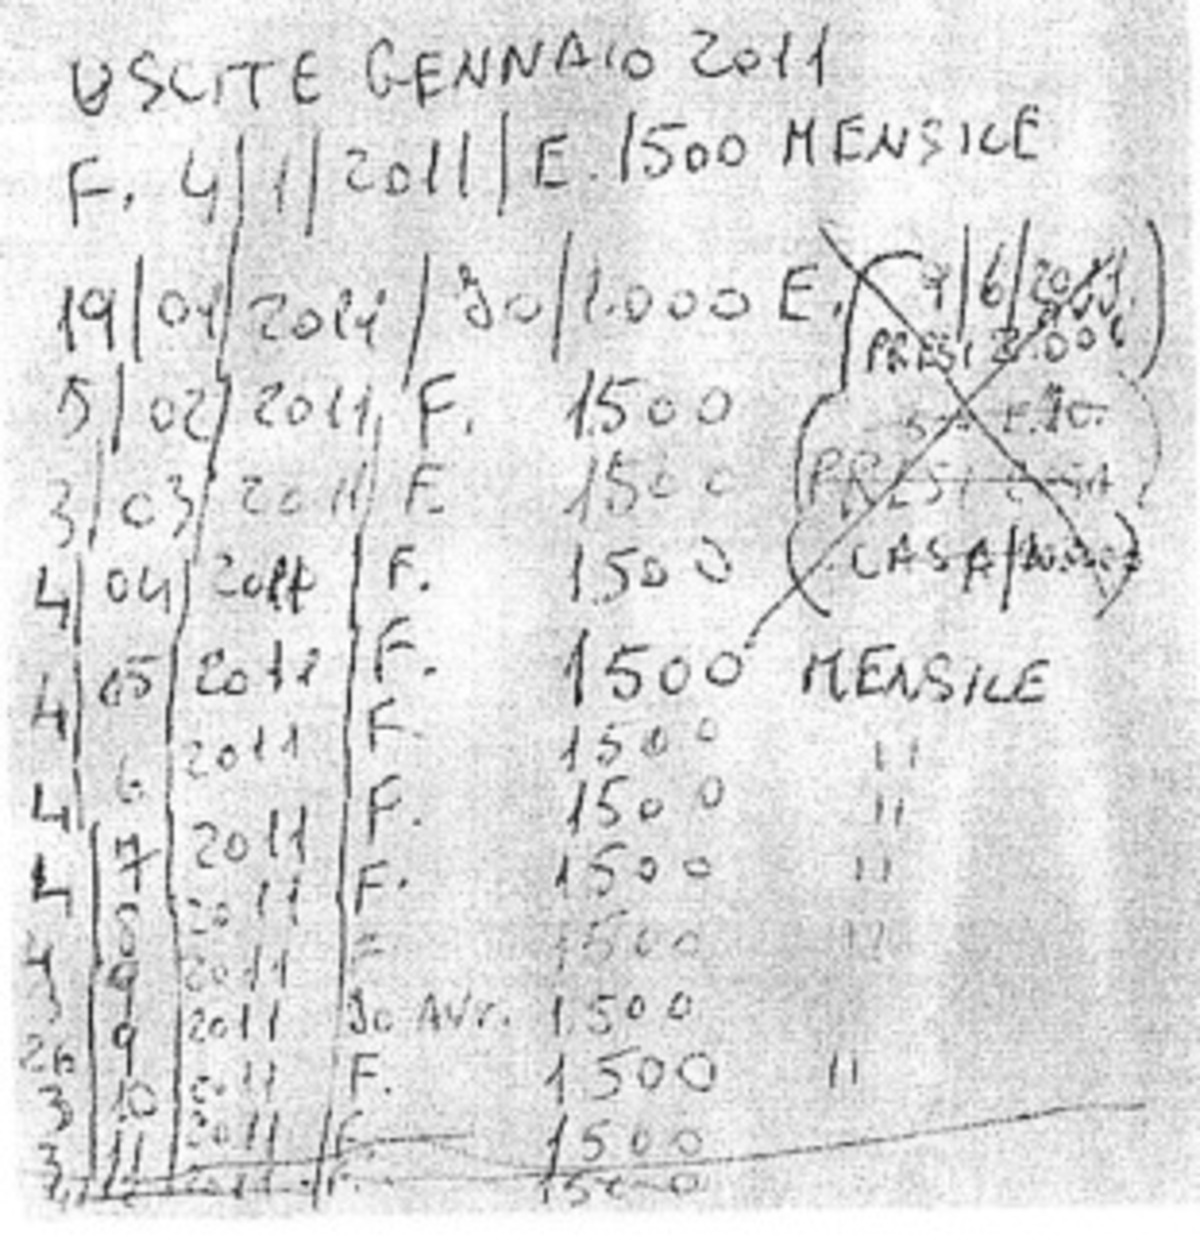 USCITE GENNAIO 2011
F. 4/1/2011/E. 1500 MENSILE
19/01/2011/Jo/1.000 E. (9/6/2011
PRESI
5/02/2011 F. 1500
3/03/2011 F. 1500 PRESI
4/04/2011 F. 1500 CASA/
4/05/2011 F. 1500 MENSILE
4/6/2011 F. 1500 "
4/7/2011 F. 1500 "
4/8/2011 F. 1500 "
9/2011 1500 "
26/9/2011 Jo AVr. 1500
3/10/2011 F. 1500 "
3/11/2011 F. 1500
2011 F. 1500